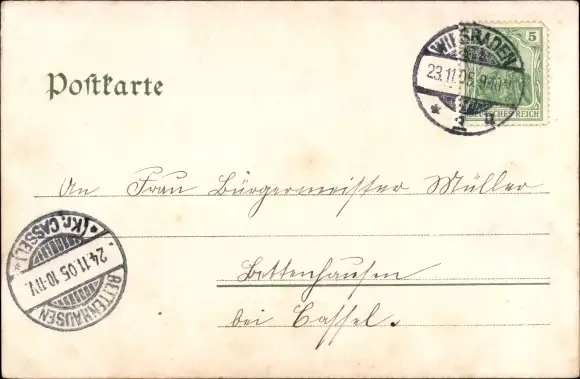 Postkarte
5
DEUTSCHES REICH
WIESBADEN
23.11.05
An Frau Bürgermeister Müller
Bettenhausen
bei Cassel.
*(Kr. CASSEL)*
24.11.05.10-11V.
BETTENHAUSEN